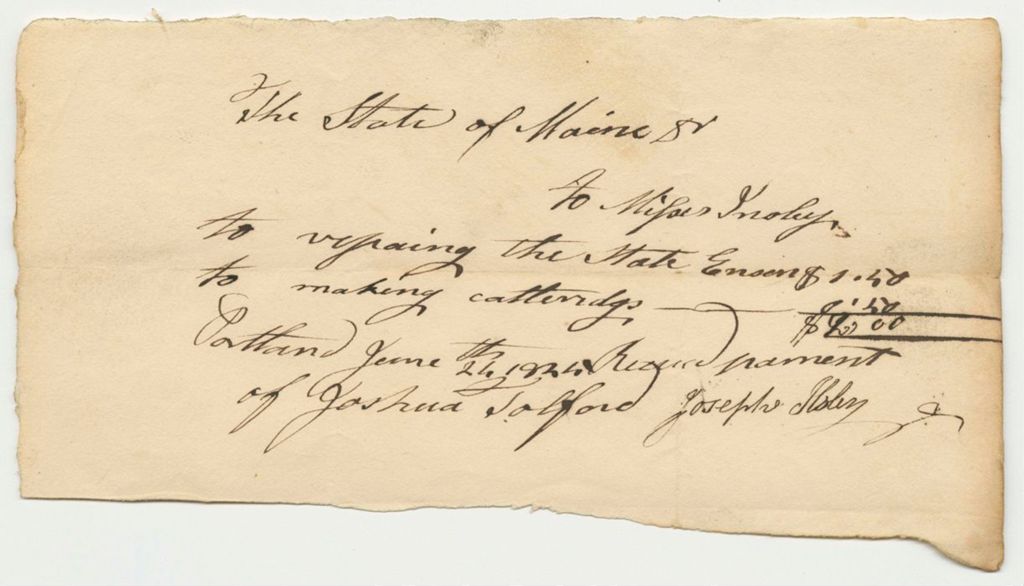 The State of Maine Dr
to Misses Insley
to repaing the State Enson $1.50
to making catteridgs — $1.50
$3.00
Portland June 24th 1824 Received pament
of Joshua Tolford Joseph